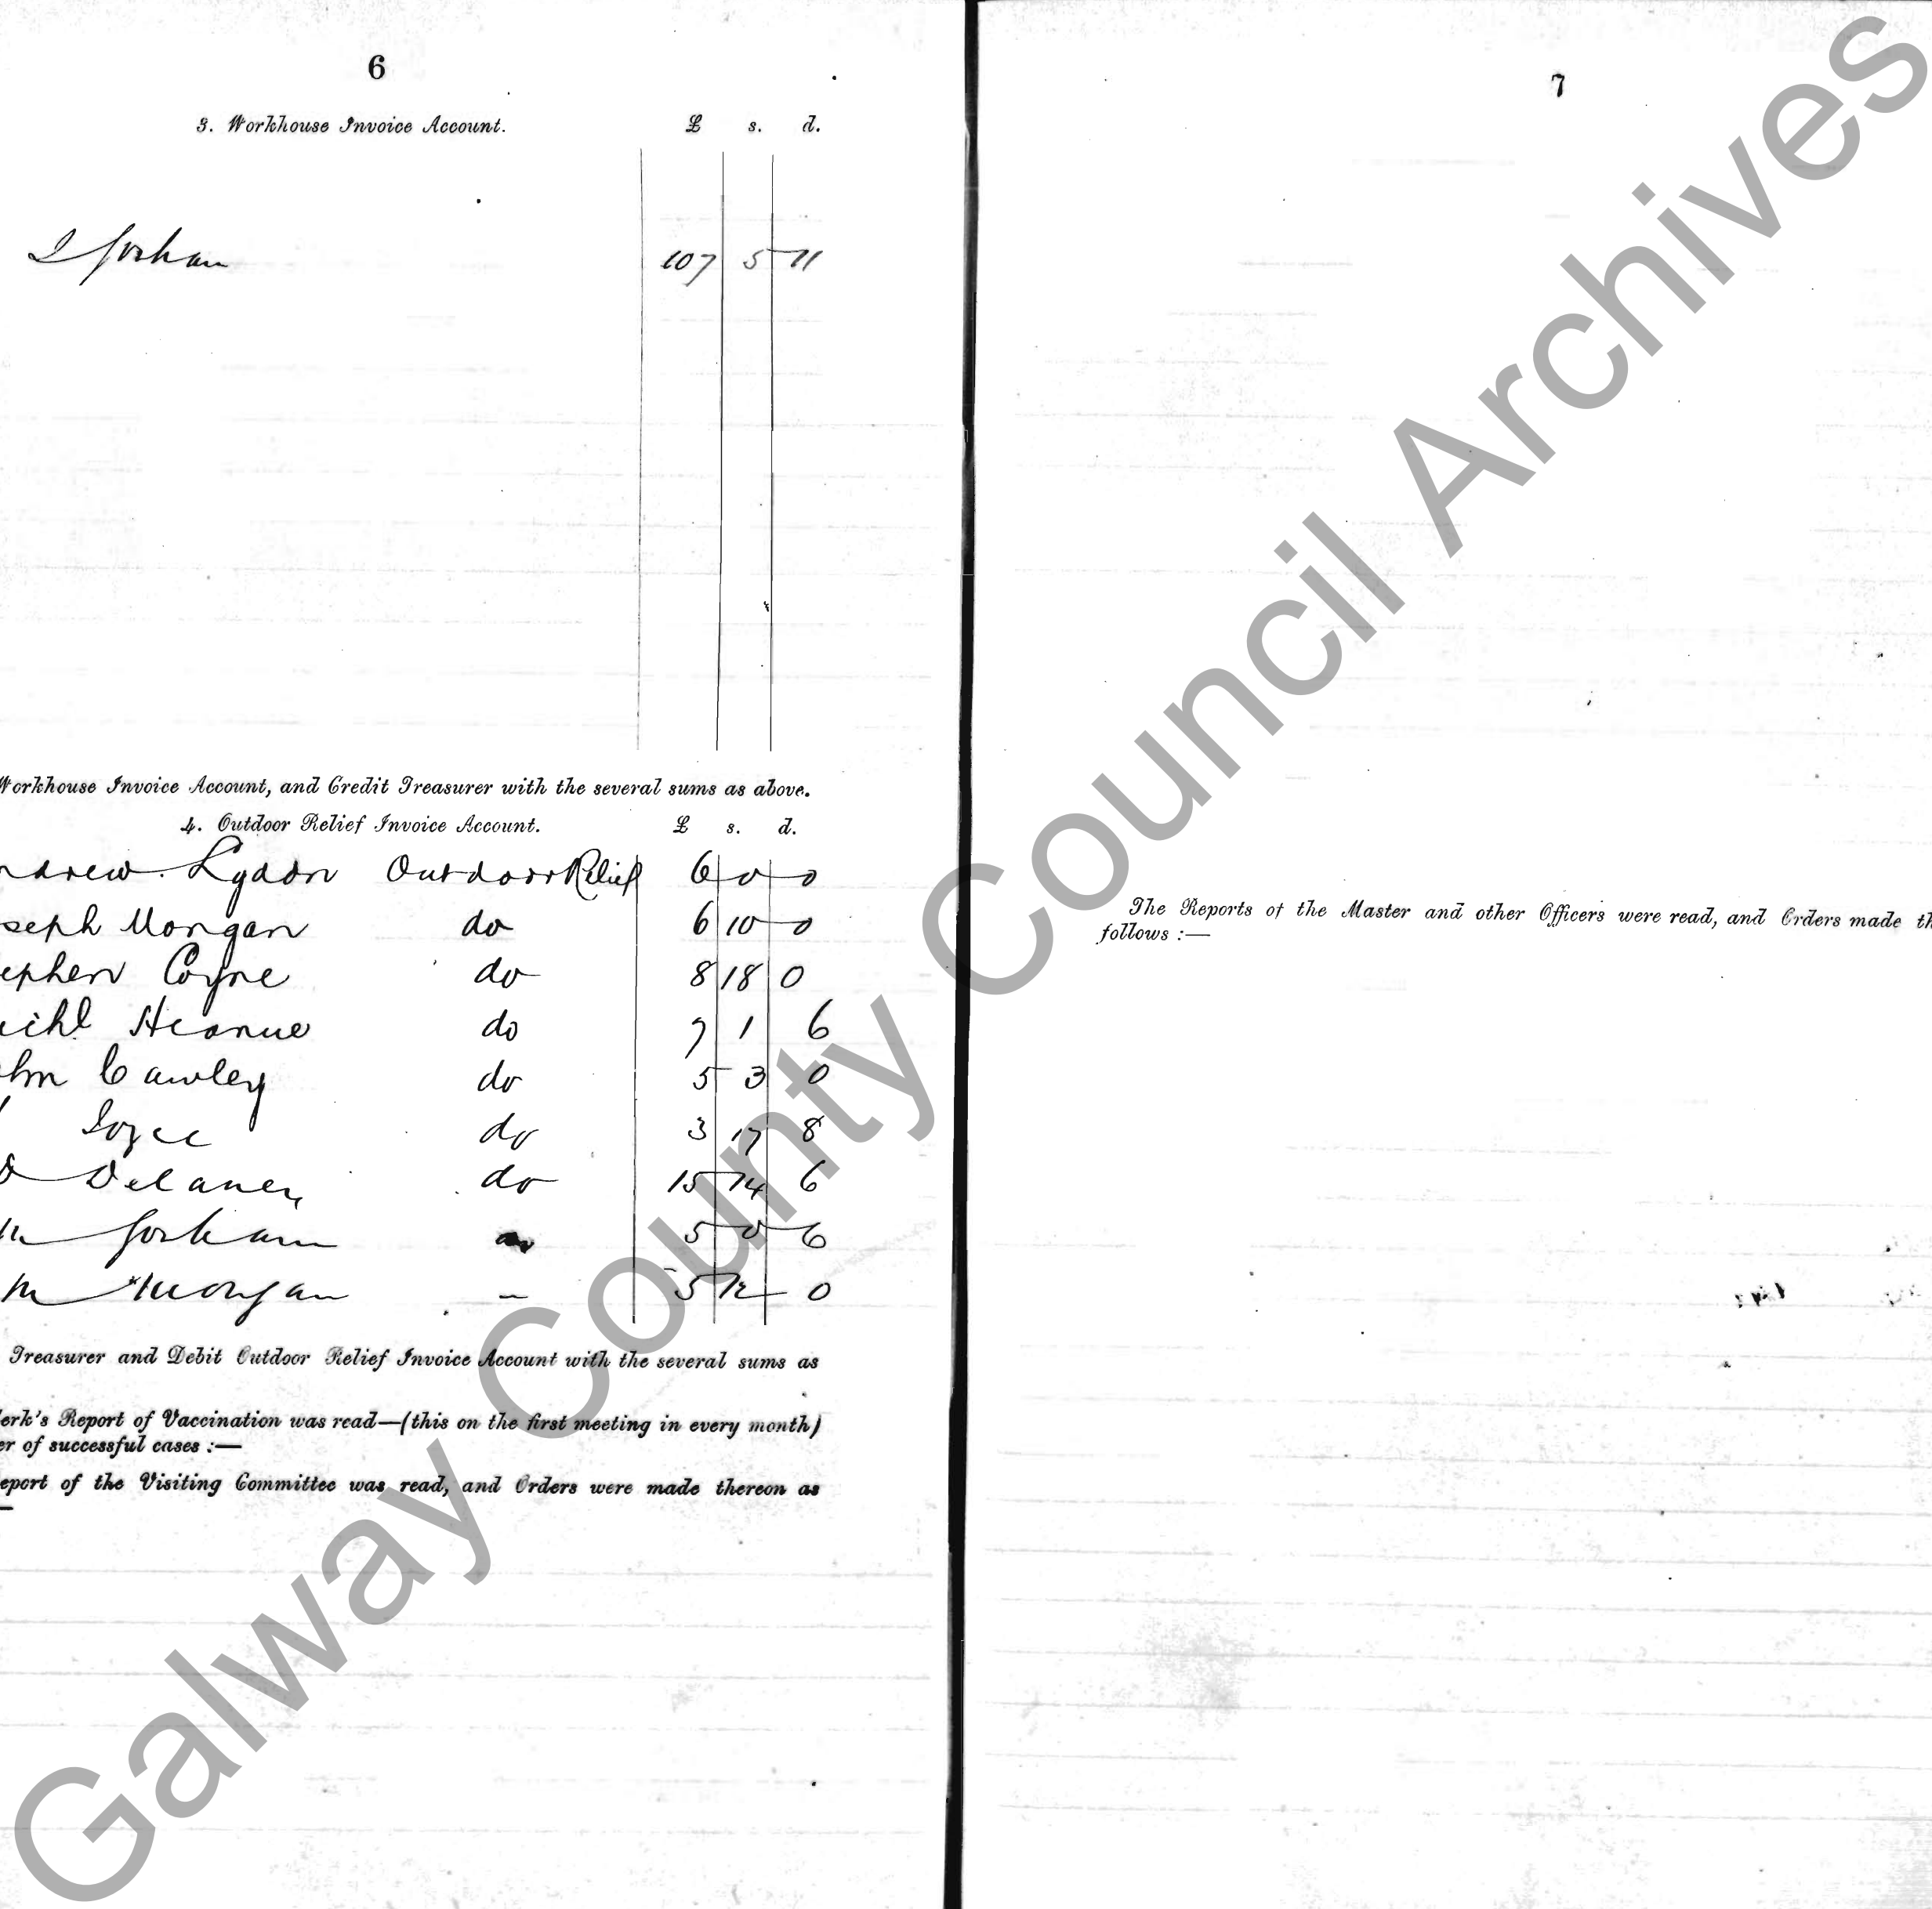 6
3. Workhouse Invoice Account. £ s. d.
J Gorham 107 5 11
Workhouse Invoice Account, and Credit Treasurer with the several sums as above.
4. Outdoor Relief Invoice Account. £ s. d.
ndrew Lydon Outdoor Relief 6 0 0
seph Mongan do 6 10 0
ephen Coyne do 8 18 0
ichl Heanue do 7 1 6
ohn Cawley do 5 3 0
Joyce do 3 17 8
Delaney do 15 14 6
Gorham 5 0 6
M Mongan — 5 12 0
Treasurer and Debit Outdoor Relief Invoice Account with the several sums as
lerk's Report of Vaccination was read—(this on the first meeting in every month)
er of successful cases :—
eport of the Visiting Committee was read, and Orders were made thereon as
7
The Reports of the Master and other Officers were read, and Orders made th
follows :—
Galway County Council Archives